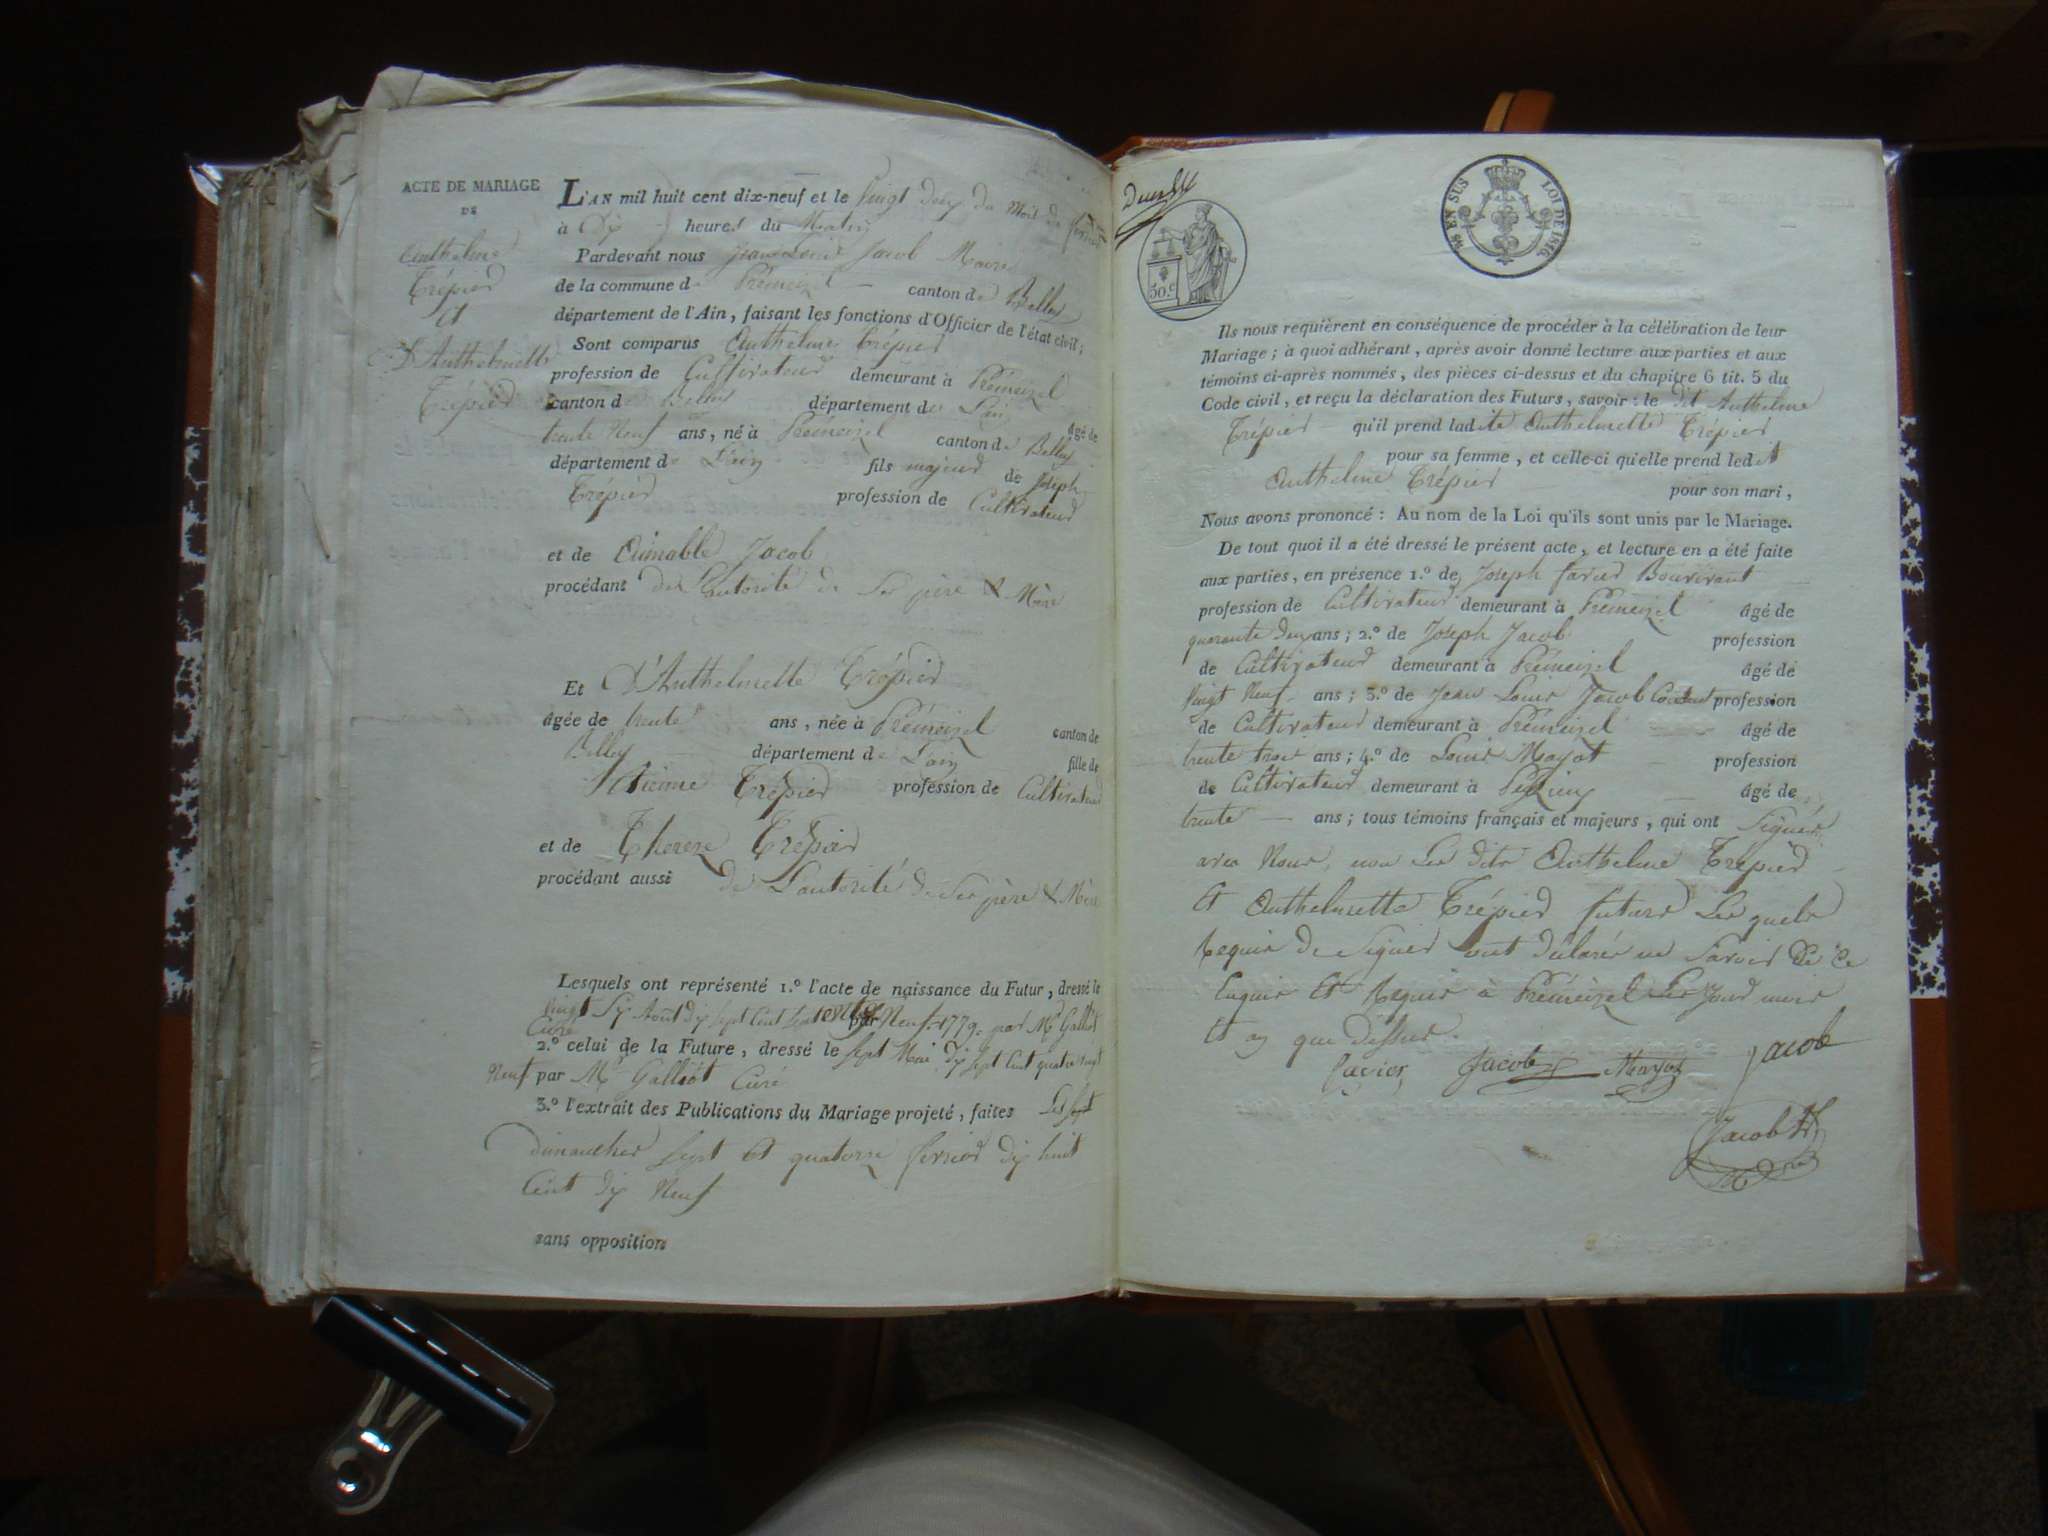 ACTE DE MARIAGE
DE
Anthelme
Trépier
Et
D'Anthelmette
Trépier
L'AN mil huit cent dix-neuf et le Vingt deux du Mois de février
à Dix heures du Matin
Pardevant nous Jean Louis Jacob Maire
de la commune de Prémeizel canton de Belley
département de l'Ain, faisant les fonctions d'Officier de l'état civil;
Sont comparus Anthelme Trépier
profession de Cultivateur demeurant à Prémeizel
canton de Belley département de L'ain âgé de
trente Neuf ans, né à Prémeizel canton de Belley
département de L'ain fils majeur de Joseph
Trépier profession de Cultivateur
et de Aimable Jacob
procédant de L'autorité de Ses père & Mère
Et D'Anthelmette Trépier
âgée de trente ans, née à Prémeizel canton de
Belley département de L'ain fille de
Etienne Trépier profession de Cultivateur
et de Thereze Trépier
procédant aussi de L'autorité de Ses père & Mère
Lesquels ont représenté 1.º l'acte de naissance du Futur, dressé le
Vingt Six Août dix Sept Cent Septante Neuf 1779 par par Mr Galliot
Curé
2.º celui de la Future, dressé le Sept Mai dix Sept Cent quatre Vingt
Neuf par Mr Galliot Curé
3.º l'extrait des Publications du Mariage projeté, faites Les
dimanches Sept Et quatorze février dix huit
Cent dix Neuf
sans opposition
EN SUS LOI DE 1816.
50.c
Ils nous requièrent en conséquence de procéder à la célébration de leur
Mariage; à quoi adhérant, après avoir donné lecture aux parties et aux
témoins ci-après nommés, des pièces ci-dessus et du chapitre 6 tit. 5 du
Code civil, et reçu la déclaration des Futurs, savoir: le dit Anthelme
Trépier qu'il prend ladite Anthelmette Trépier
pour sa femme, et celle-ci qu'elle prend ledit
Anthelme Trépier pour son mari,
Nous avons prononcé: Au nom de la Loi qu'ils sont unis par le Mariage.
De tout quoi il a été dressé le présent acte, et lecture en a été faite
aux parties, en présence 1.º de Joseph favier Bouvivant
profession de Cultivateur demeurant à Prémeizel âgé de
quarante deux ans; 2.º de Joseph Jacob profession
de Cultivateur demeurant à Prémeizel âgé de
Vingt Neuf ans; 3.º de Jean Louis Jacob profession
de Cultivateur demeurant à Prémeizel âgé de
trente trois ans; 4.º de Louis Mayot profession
de Cultivateur demeurant à Pezieu âgé de
trente ans; tous témoins français et majeurs, qui ont Signés
avec Nous, non Les dits Anthelme Trépier
Et Anthelmette Trépier futurs Les quels
Requis de Signer ont déclarés ne Savoir De Ce
Enquis Et Requis à Prémeizel Les Jour mois
Et an que dessus.
favier, Jacob Mayot Jacob
Jacob